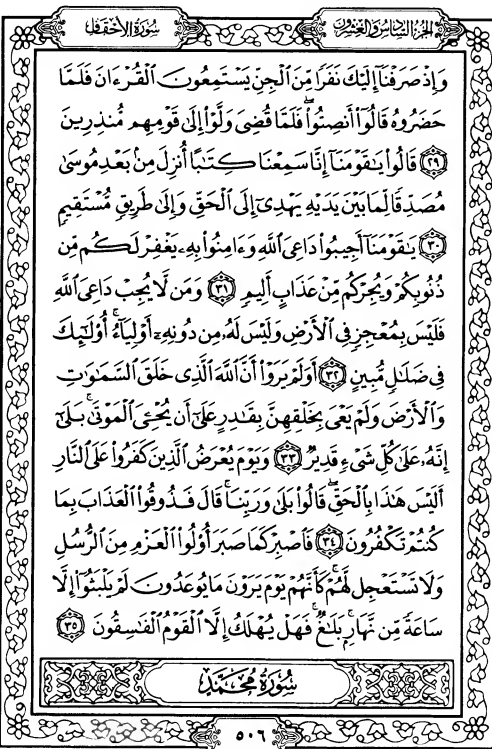 الجزء السادس والعشرون
سورة الأحقاف
وَإِذْ صَرَفْنَآ إِلَيْكَ نَفَرًا مِّنَ ٱلْجِنِّ يَسْتَمِعُونَ ٱلْقُرْءَانَ فَلَمَّا
حَضَرُوهُ قَالُوٓا۟ أَنصِتُوا۟ ۖ فَلَمَّا قُضِىَ وَلَّوْا۟ إِلَىٰ قَوْمِهِم مُّنذِرِينَ
﴿٢٩﴾ قَالُوا۟ يَٰقَوْمَنَآ إِنَّا سَمِعْنَا كِتَٰبًا أُنزِلَ مِنۢ بَعْدِ مُوسَىٰ
مُصَدِّقًا لِّمَا بَيْنَ يَدَيْهِ يَهْدِىٓ إِلَى ٱلْحَقِّ وَإِلَىٰ طَرِيقٍ مُّسْتَقِيمٍ
﴿٣٠﴾ يَٰقَوْمَنَآ أَجِيبُوا۟ دَاعِىَ ٱللَّهِ وَءَامِنُوا۟ بِهِۦ يَغْفِرْ لَكُم مِّن
ذُنُوبِكُمْ وَيُجِرْكُم مِّنْ عَذَابٍ أَلِيمٍ ﴿٣١﴾ وَمَن لَّا يُجِبْ دَاعِىَ ٱللَّهِ
فَلَيْسَ بِمُعْجِزٍ فِى ٱلْأَرْضِ وَلَيْسَ لَهُۥ مِن دُونِهِۦٓ أَوْلِيَآءُ ۚ أُو۟لَٰٓئِكَ
فِى ضَلَٰلٍ مُّبِينٍ ﴿٣٢﴾ أَوَلَمْ يَرَوْا۟ أَنَّ ٱللَّهَ ٱلَّذِى خَلَقَ ٱلسَّمَٰوَٰتِ
وَٱلْأَرْضَ وَلَمْ يَعْىَ بِخَلْقِهِنَّ بِقَٰدِرٍ عَلَىٰٓ أَن يُحْۦِىَ ٱلْمَوْتَىٰ ۚ بَلَىٰٓ
إِنَّهُۥ عَلَىٰ كُلِّ شَىْءٍ قَدِيرٌ ﴿٣٣﴾ وَيَوْمَ يُعْرَضُ ٱلَّذِينَ كَفَرُوا۟ عَلَى ٱلنَّارِ
أَلَيْسَ هَٰذَا بِٱلْحَقِّ ۖ قَالُوا۟ بَلَىٰ وَرَبِّنَا ۚ قَالَ فَذُوقُوا۟ ٱلْعَذَابَ بِمَا
كُنتُمْ تَكْفُرُونَ ﴿٣٤﴾ فَٱصْبِرْ كَمَا صَبَرَ أُو۟لُوا۟ ٱلْعَزْمِ مِنَ ٱلرُّسُلِ
وَلَا تَسْتَعْجِل لَّهُمْ ۚ كَأَنَّهُمْ يَوْمَ يَرَوْنَ مَا يُوعَدُونَ لَمْ يَلْبَثُوٓا۟ إِلَّا
سَاعَةً مِّن نَّهَارٍۭ ۚ بَلَٰغٌ ۚ فَهَلْ يُهْلَكُ إِلَّا ٱلْقَوْمُ ٱلْفَٰسِقُونَ ﴿٣٥﴾
سُورَةُ مُحَمَّد
٥٠٦